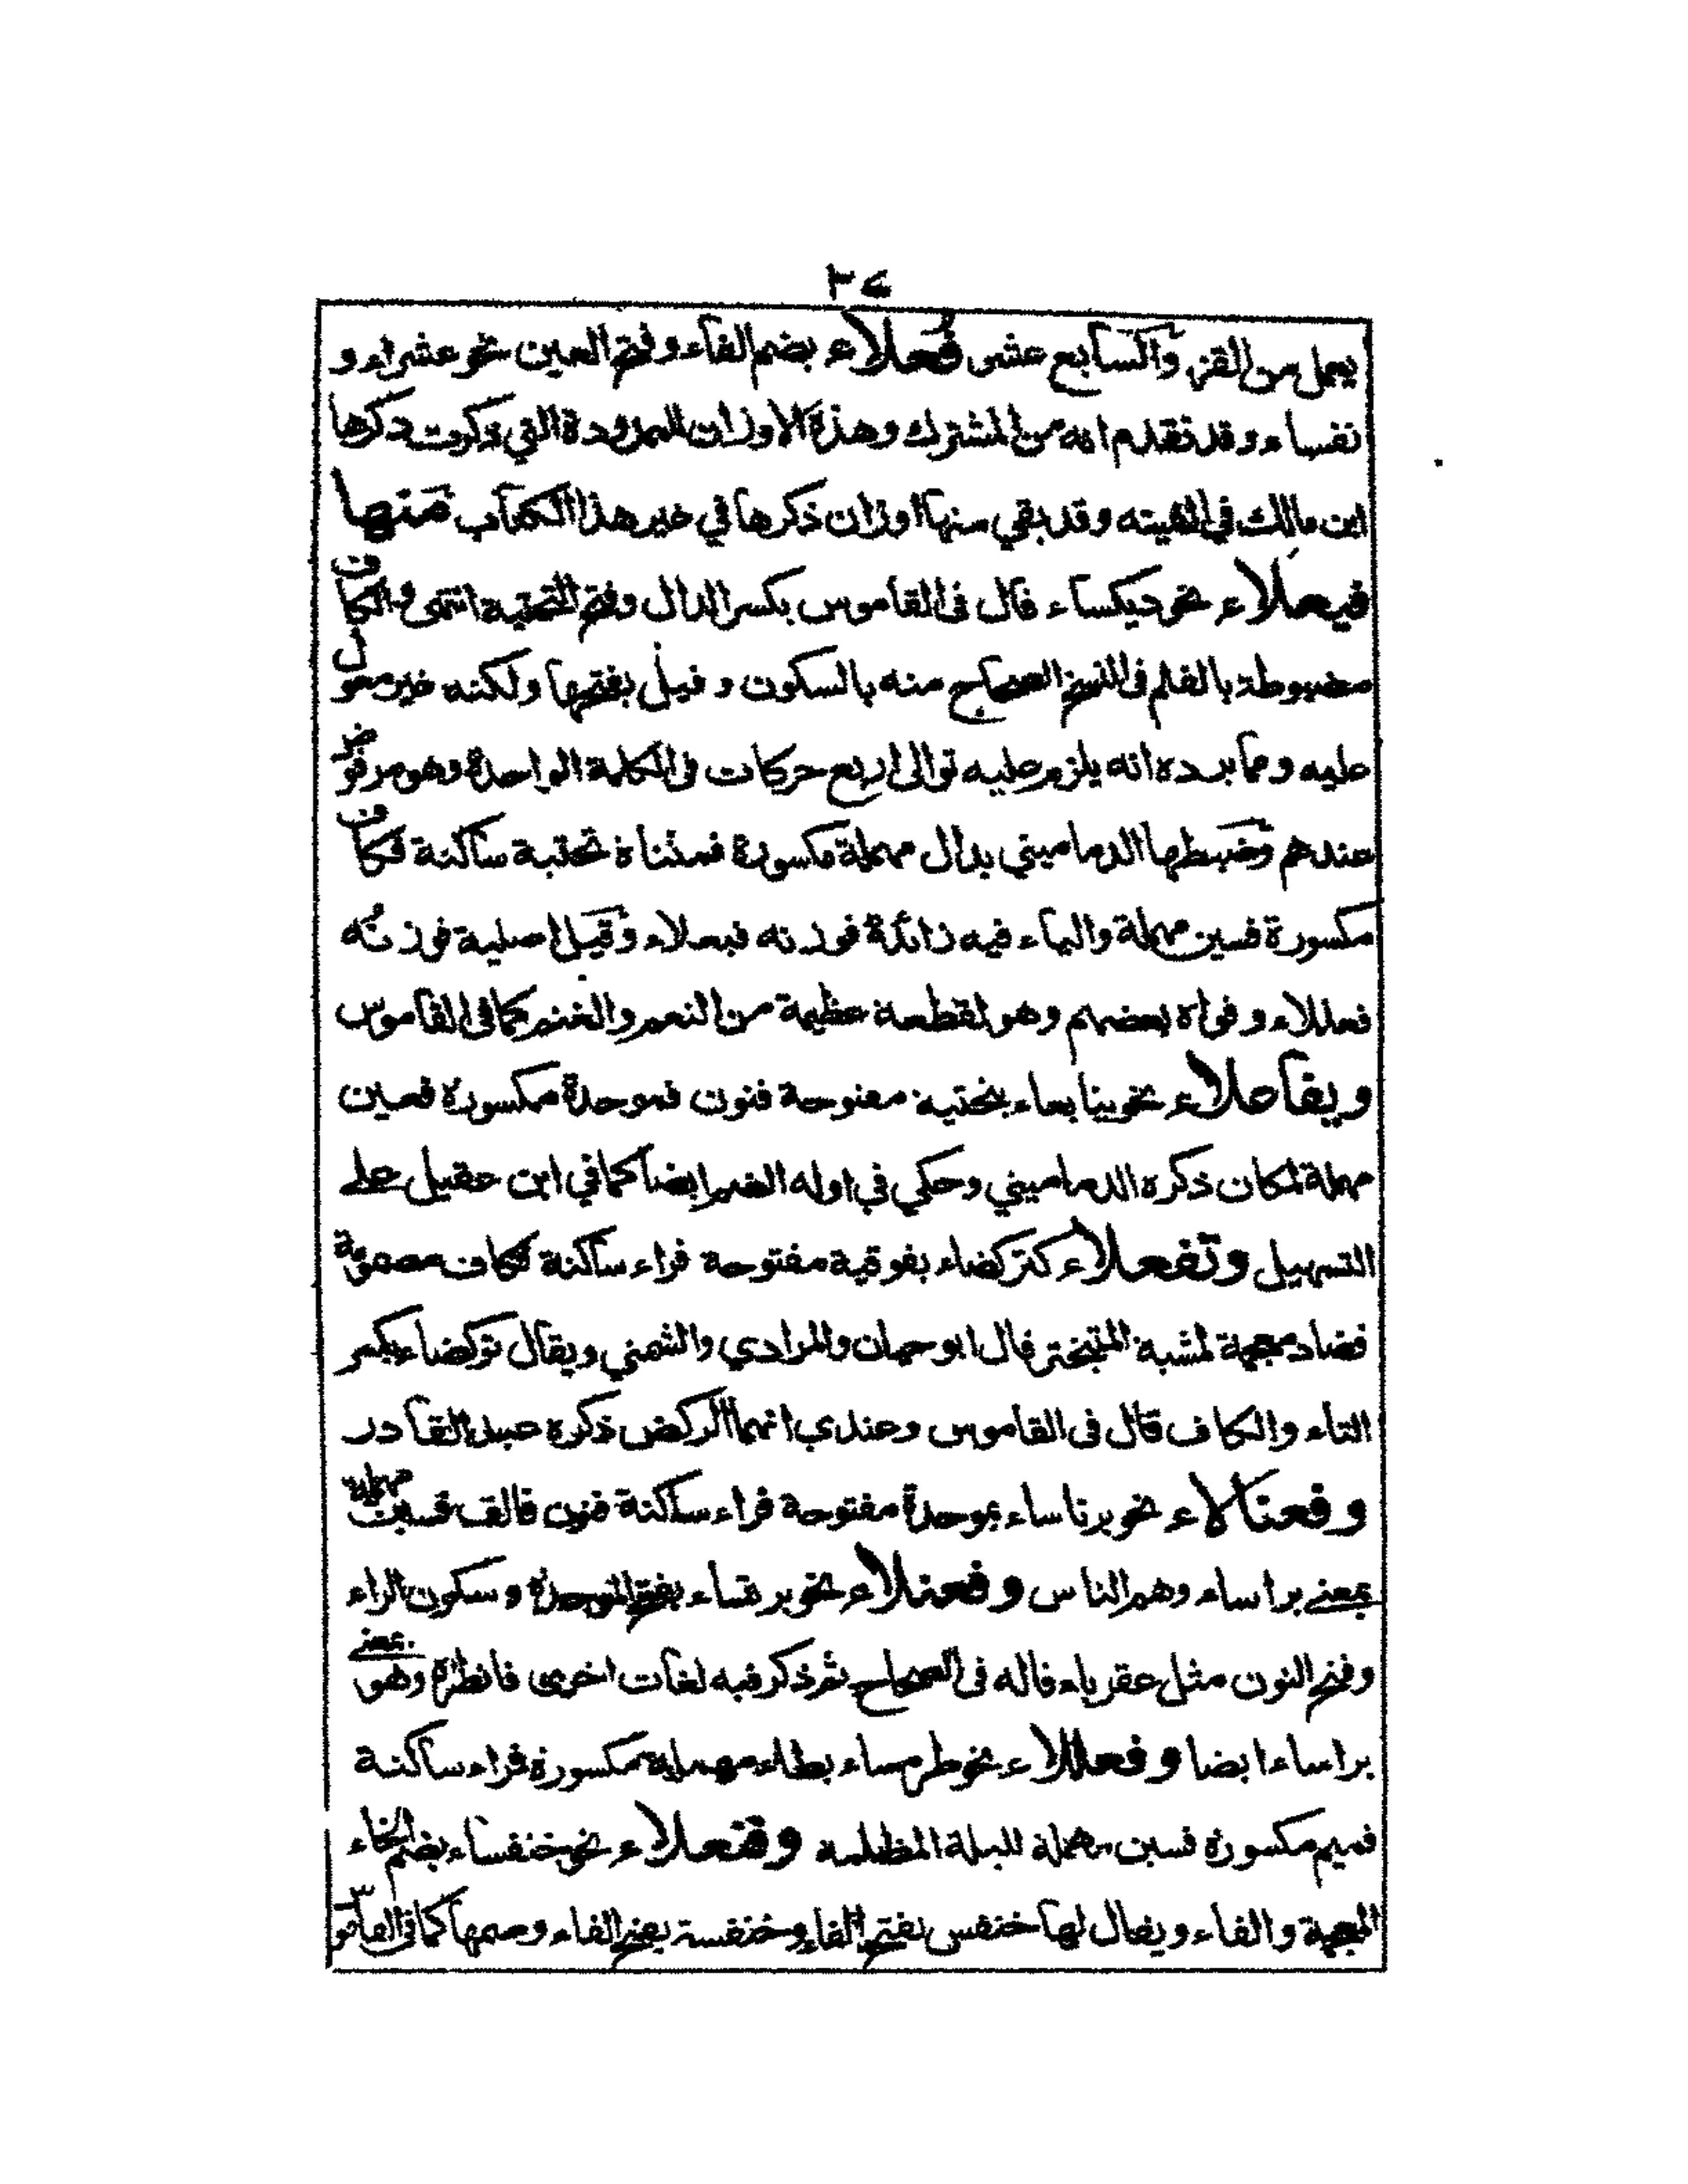 ٣٤
يعمل من القز والسابع عشر فُعلاء بضم الفاء وفتح العين نحو عشراء و
نفساء وقد تقدم انه من المشترك وهذه الاوزان الممدودة التي ذكرت ذكرها
ابن مالك في الفيته وقد بقي منها اوزان ذكرها في غير هذا الكتاب منها
فيعلاء نحو ديكساء قال فى القاموس بكسر الدال وفتح التحتية انتهى والكاف
مضبوطة بالقلم فى النسخ الصحاح منه بالسكون وقيل بفتحها ولكنه غير معول
عليه ومما يرده انه يلزم عليه توالى اربع حركات فى الكلمة الواحدة وهو مرفوض
عندهم وضبطها الدماميني بدال مهملة مكسورة فمثناة تحتية ساكنة فكاف
مكسورة فسين مهملة والياء فيه زائدة فوزنه فيعلاء وقيل اصلية فوزنه
فعللاء وقواه بعضهم وهو لقطعة عظيمة من النعم والغنم كما فى القاموس
ويفاعلاء نحو ينابعاء بتحتية مفتوحة فنون فموحدة مكسورة فعين
مهملة لمكان ذكره الدماميني وحكي في اوله الضم ايضا كما في ابن عقيل على
التسهيل وتفعلاء كتركضاء بفوقية مفتوحة فراء ساكنة فكاف مضمومة
فضاد معجمة لمشية المتبختر قال ابو حيان والمرادي والشمني ويقال تركضاء بكسر
التاء والكاف قال فى القاموس وعندي انهما الركض ذكره عبد القادر
وفعنالاء نحو برناساء بموحدة مفتوحة فراء ساكنة فنون فالف فسين مهملة
بمعنى براساء وهم الناس وفعنلاء نحو برنساء بفتح الموحدة وسكون الراء
وفتح النون مثل عقرباء قاله فى الصحاح ثم ذكر فيه لغات اخرى فانظره وهو بمعنى
براساء ايضا وفعللاء نحو طرمساء بطاء مهملة مكسورة فراء ساكنة
فميم مكسورة فسين مهملة لليلة المظلمة وفنعلاء نحو خنفساء بضم الخاء
المعجمة والفاء ويقال لها خنفس بفتح الفاء وخنفسة بفتح الفاء وضمها كما فى القاموس